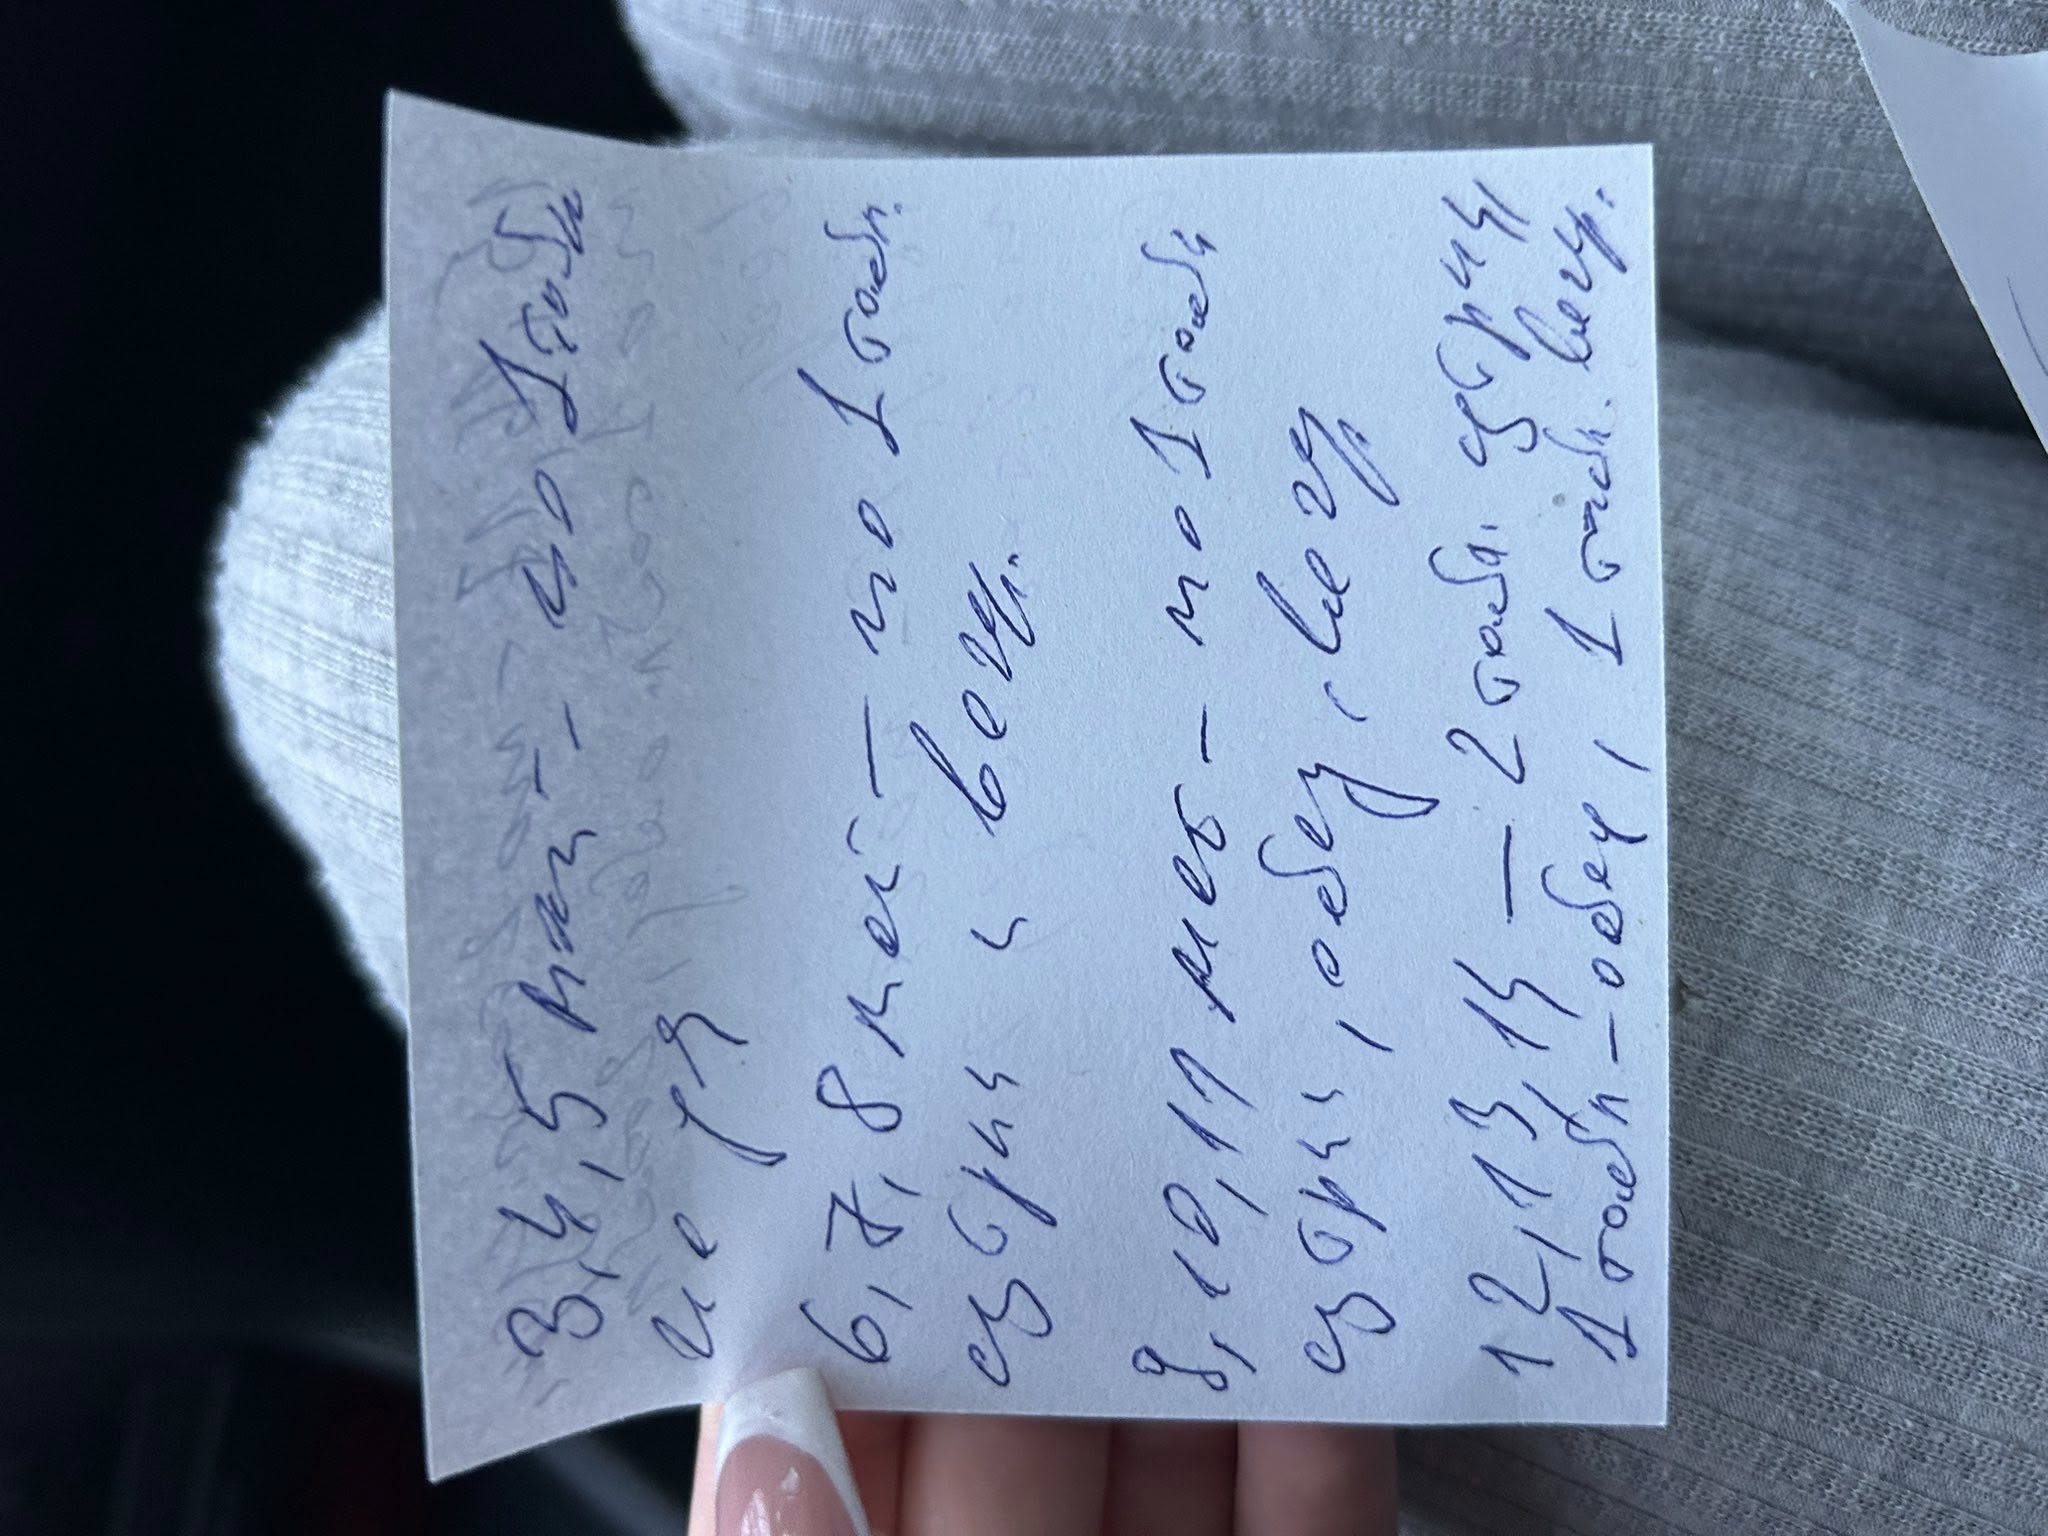 3, 4, 5 мај - по 1 табл
6, 7, 8 мај - по 1 табл.
утри и веч.
9, 10, 11 - по 1 табл
утри, обед, веч
12, 13, 14 - 2 табл. утри,
1 табл - обед, 1 табл. веч.